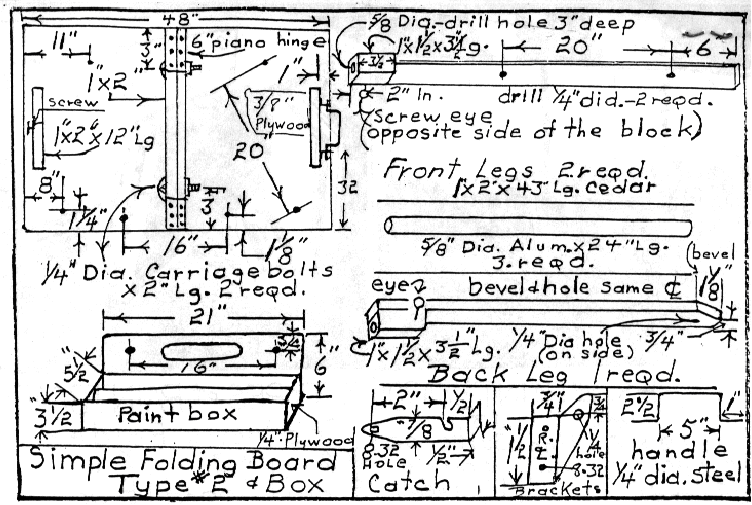 48"
11"
3"
6" piano hinge
1"
1"x2"
screw
1"x2"x12" Lg
3/8"
Plywood
20"
8"
1 1/4"
3"
32
16"
1 1/8"
1/4" Dia. Carriage bolts
x2" Lg. 2 reqd.
5/8 Dia.-drill hole 3" deep
1"x1 1/2x3 1/2 Lg.
3 1/2
20"
6"
2" In.
drill 1/4" dia.-2 reqd.
(screw eye
opposite side of the block)
Front Legs 2 reqd.
1"x2"x43" Lg. Cedar
5/8" Dia. Alum. x 24" Lg.
3. reqd.
eye
bevel & hole same ℄
(bevel
1 1/8"
1"x1 1/2x3 1/2" Lg.
1/4" Dia hole
(on side)
3/4"
Back Leg 1 reqd.
21"
3/4
16"
6"
5 1/2"
3 1/2
Paint box
1/4" Plywood
Simple Folding Board
Type #2 & Box
2"
1/2
7/8
8-32
HOLE
1/2"
Catch
3/4"
3/4
1 1/2
R.
hole
8-32
Brackets
2 1/2
1"
5"
handle
1/4" dia. Steel